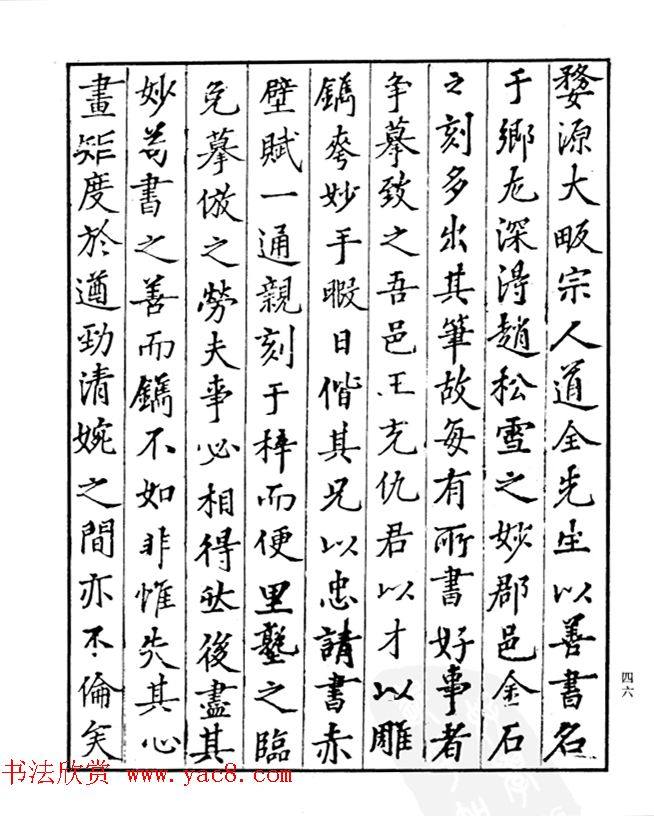 婺源大畈宗人道全先生以善書名
于鄉尤深得趙松雪之妙郡邑金石
之刻多出其筆故每有所書好事者
争摹致之吾邑王充仇君以才以雕
鐫夸妙手暇日偕其兄以忠請書赤
壁賦一通親刻于梓而便里塾之臨
免摹倣之勞夫事必相得然後盡其
妙若書之善而鐫不如非惟失其心
畫矩度於遒勁清婉之間亦不倫矣
四六
书法欣赏 www.yac8.com